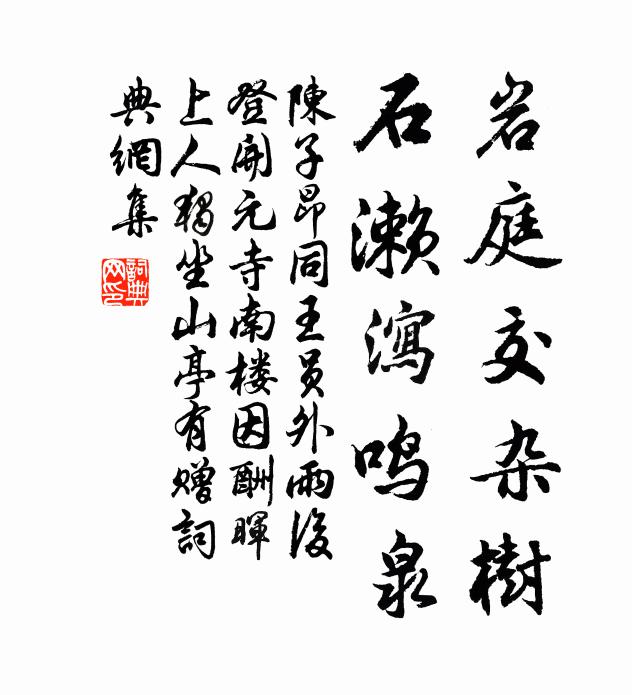 岩庭交杂樹
石濑瀉鸣泉
陳子昂同王員外雨後
登開元寺南楼因酬暉
上人獨坐山亭有贈詞
典網集
詞典
网印